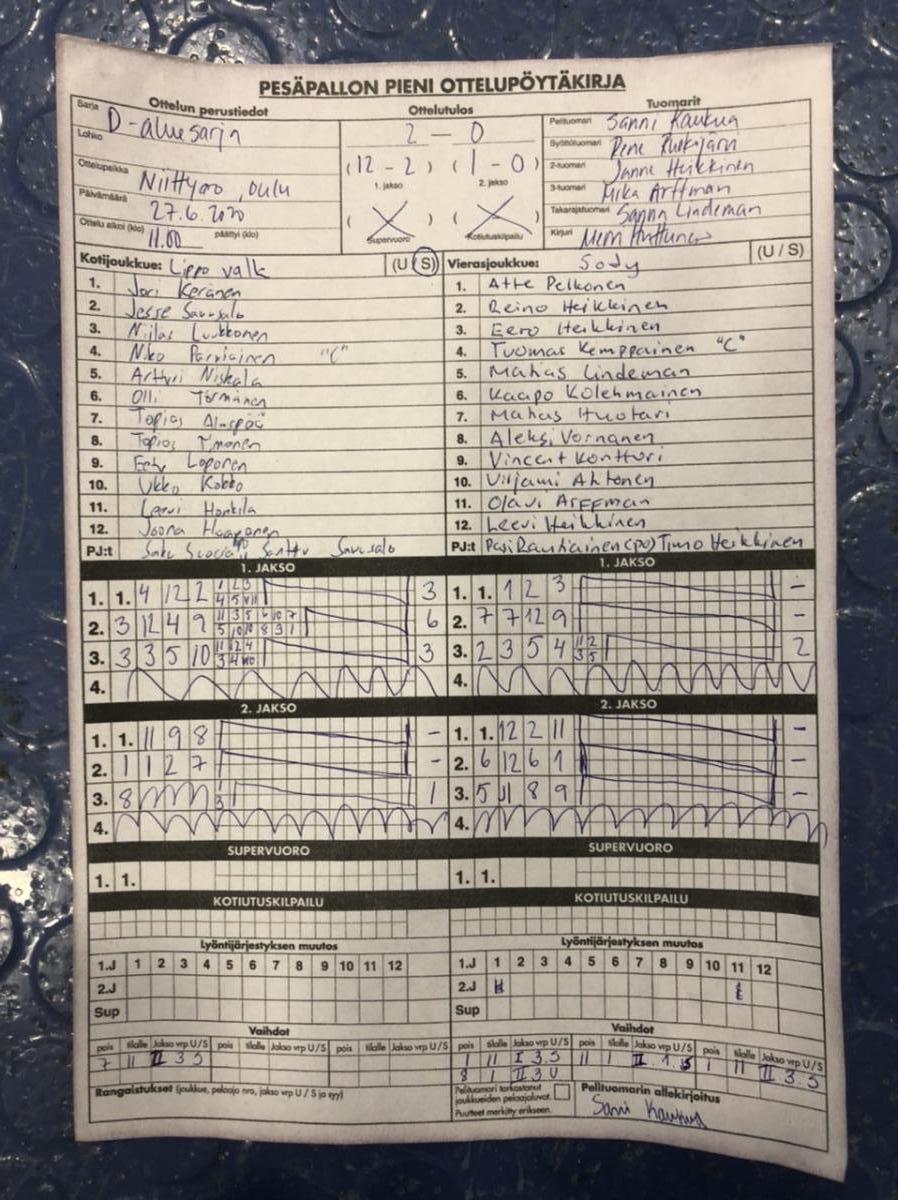 PESÄPALLON PIENI OTTELUPÖYTÄKIRJA
Ottelun perustiedot
Sarja D-aluesarja
Lohko
Ottelupaikka Niittyaro, Oulu
Päivämäärä 27.6.2020
Ottelu alkoi (klo) 11.00 päättyi (klo)
Ottelutulos
2 - 0
(12 - 2) (1 - 0)
1. jakso 2. jakso
( ) ( )
Supervuoro Kotiutuskilpailu
Tuomarit
Pelituomari Sanni Kaukua
Syöttötuomari
2-tuomari Janne Heikkinen
3-tuomari Mika Arffman
Takarajatuomari Sanna Lindeman
Kirjuri
Kotijoukkue: Lippo valk (U S)
1. Jori Keränen
2. Jesse Savusalo
3. Niilas Luukkonen
4. Niko Parviainen "C"
5. Artturi Niskala
6. Olli Törmänen
7. Topias
8. Topias
9. Eetu Loponen
10. Ukko Kokko
11. Leevi Honkila
12. Joona Haaponen
PJ:t Santtu Savusalo
Vierasjoukkue: SoJy (U / S)
1. Atte Pelkonen
2. Reino Heikkinen
3. Eero Heikkinen
4. Tuomas Kemppainen "C"
5. Matias Lindeman
6. Kaapo Kolehmainen
7. Matias Huotari
8. Aleksi Vornanen
9. Vincent Konttori
10. Virjami Ahtonen
11. Olavi Arffman
12. Leevi Heikkinen
PJ:t Pasi Rautiainen (po) Timo Heikkinen
1. JAKSO
1. 1. 4 12 2 3
2. 3 12 4 9 6
3. 3 3 5 10 3
4.
1. JAKSO
1. 1. 1 2 3 -
2. 7 7 12 9 -
3. 2 3 5 4 11 2 3 5 2
4.
2. JAKSO
1. 1. 11 9 8 -
2. 1 1 2 7 -
3. 8 1 3 1
4.
2. JAKSO
1. 1. 12 2 11 -
2. 6 12 6 1 -
3. 5 11 8 9 -
4.
SUPERVUORO
1. 1.
SUPERVUORO
1. 1.
KOTIUTUSKILPAILU
KOTIUTUSKILPAILU
Lyöntijärjestyksen muutos
1.J 1 2 3 4 5 6 7 8 9 10 11 12
2.J
Sup
Lyöntijärjestyksen muutos
1.J 1 2 3 4 5 6 7 8 9 10 11 12
2.J
Sup
Vaihdot
pois tilalle Jakso vrp U/S pois tilalle Jakso vrp U/S pois tilalle Jakso vrp U/S
7 11 II 3 S
Vaihdot
pois tilalle Jakso vrp U/S pois tilalle Jakso vrp U/S pois tilalle Jakso vrp U/S
1 11 I 3.S 11 1 II.1.S 1 11 II 3.S
8 1 II.3 U
Rangaistukset (joukkue, pelaaja nro, jakso vrp U / S ja syy)
Pelituomari tarkastanut
joukkueiden pelaajaluvat.
Puutteet merkitty erikseen.
Pelituomarin allekirjoitus
Sanni Kaukua